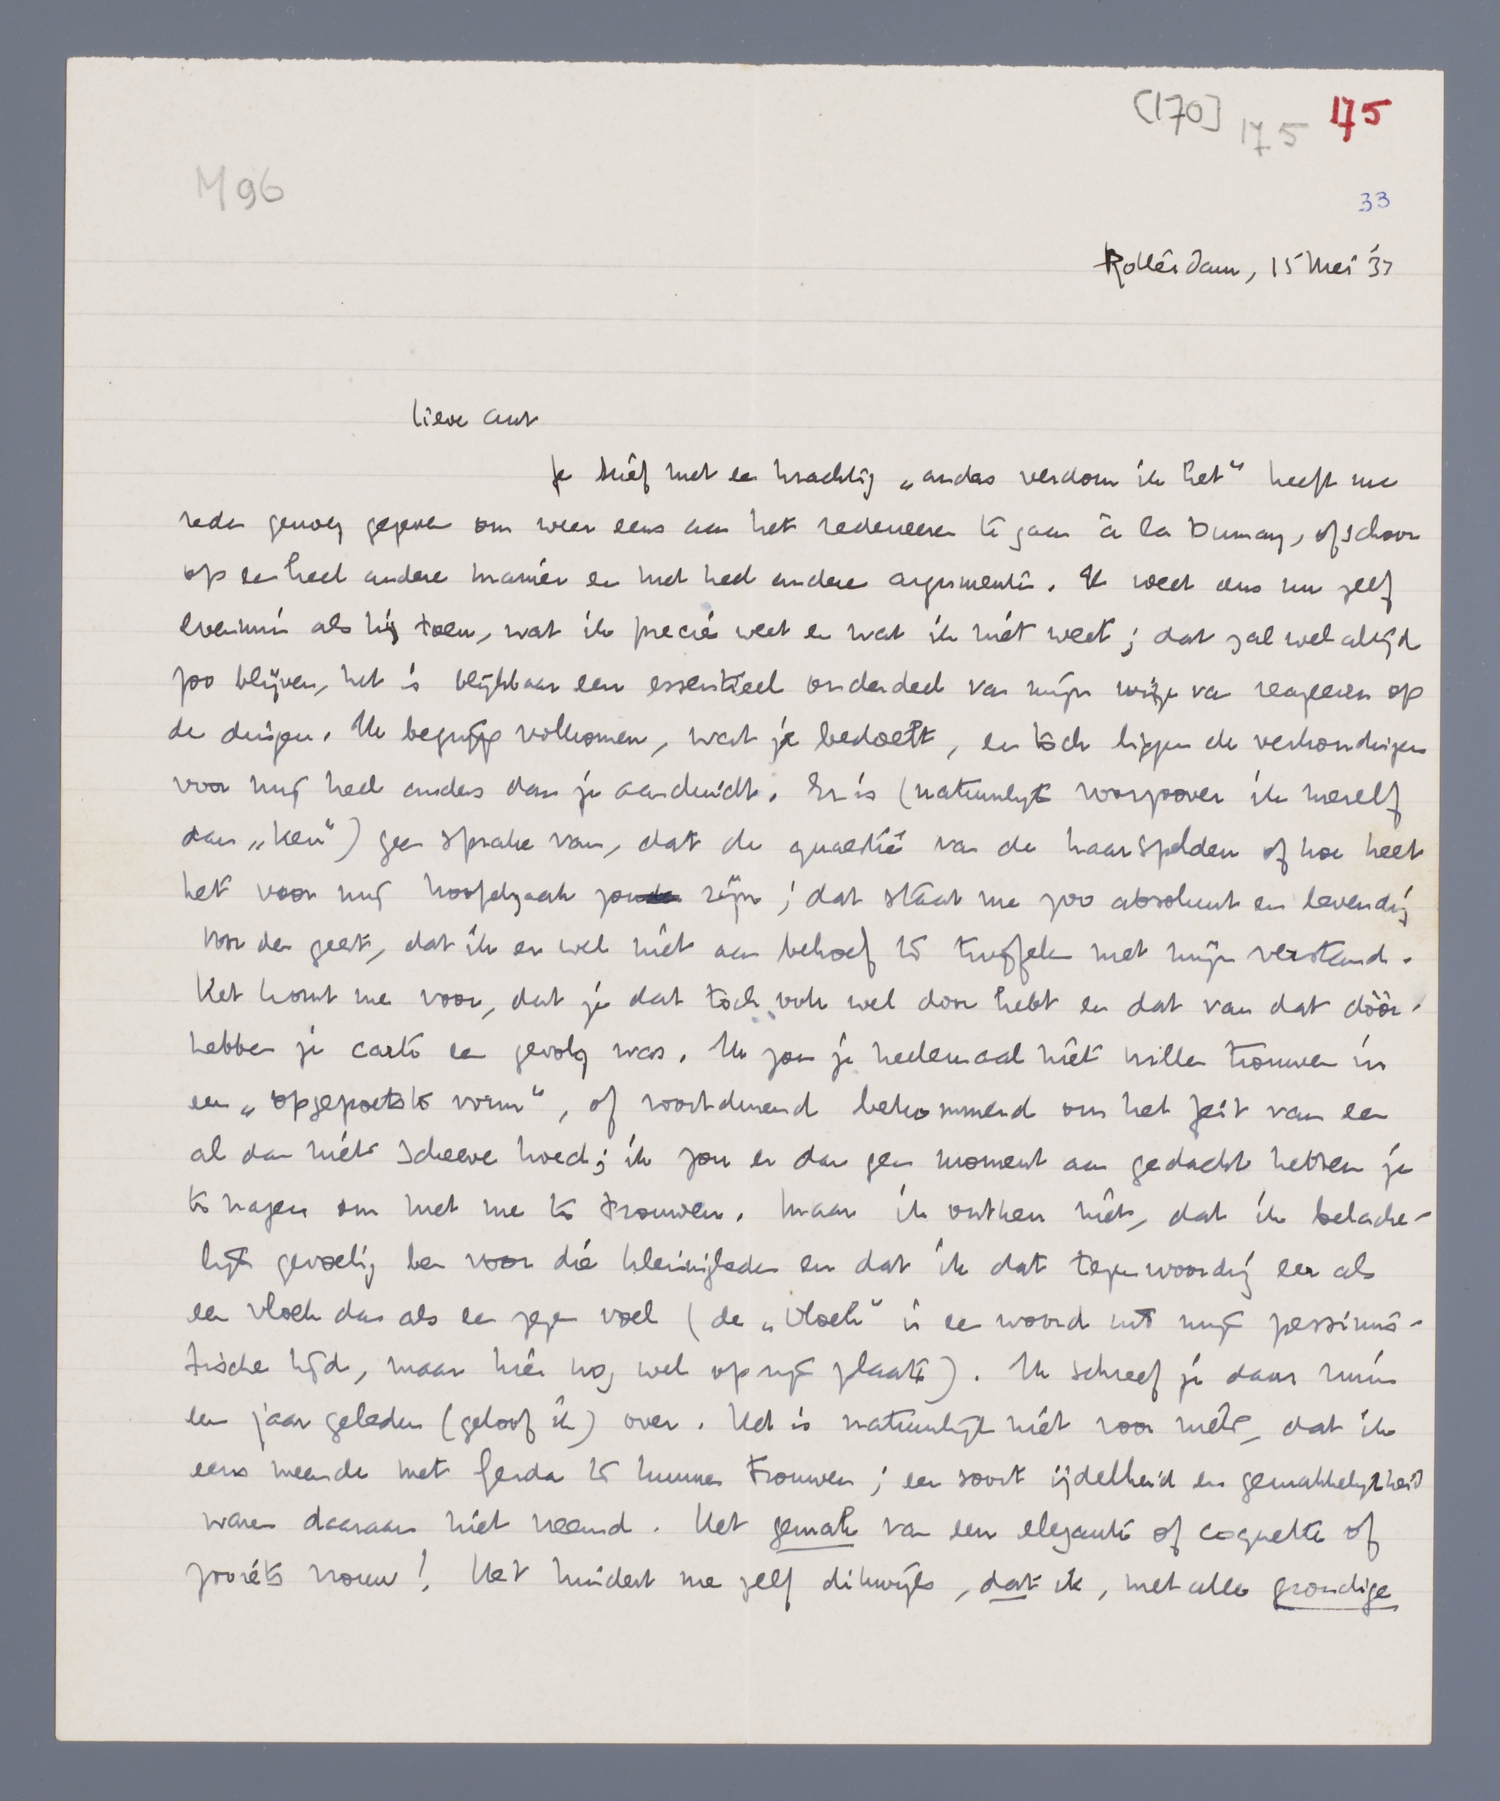 [170] 175 175
M 96
33
Rotterdam, 15 Mei '33
Lieve Ant
Je brief met een krachtig „anders verdom ik het" heeft me
reden genoeg gegeven om weer eens aan het redeneeren te gaan à la Dumay, ofschoon
op een heel andere manier en met heel andere argumenten. Ik weet dus nu zelf
evenmin als hij toen, wat ik precies weet en wat ik niet weet; dat zal wel altijd
zoo blijven, het is blijkbaar een essentieel onderdeel van mijn wijze van reageeren op
de dingen. Ik begrijp volkomen, wat je bedoelt, en toch liggen de verhoudingen
voor mij heel anders dan je aanduidt. Er is (natuurlijk voorzoover ik mezelf
dan „ken") geen sprake van, dat de quaestie van de haarspelden of hoe heet
het voor mij hoofdzaak zou zijn; dat staat me zoo absoluut en levendig
voor den geest, dat ik er wel niet aan behoef te twijfelen met mijn verstand.
Het komt me voor, dat je dat toch ook wel door hebt en dat van dat dóór-
hebben je carte een gevolg was. Ik zou je heelemaal niet willen trouwen in
een „opgepoetste vorm", of voortdurend bekommerd om het feit van een
al dan niet scheeve hoed; ik zou er dan geen moment aan gedacht hebben je
te vragen om met me te trouwen. Maar ik ontken niet, dat ik belache-
lijk gevoelig ben voor die kleinigheden en dat ik dat tegenwoordig eer als
een vloek dan als een zegen voel (de „vloek" is een woord uit mijn pessimis-
tische tijd, maar hier nog wel op zijn plaats). Ik schreef je daar ruim
een jaar geleden (geloof ik) over. Het is natuurlijk niet voor niets, dat ik
eens meende met Gerda te kunnen trouwen; een soort ijdelheid en gemakkelijkheid
waren daaraan niet vreemd. Het gemak van een elegante of coquette of
zooiets vrouw! Het hindert me zelf dikwijls, dat ik, met alle grondige